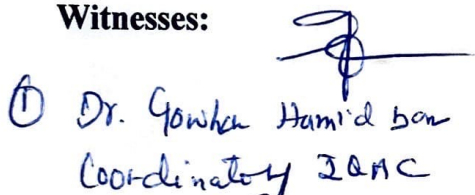 Witnesses:
① Dr. Gowhar Hamid Dar
Coordinator IQAC